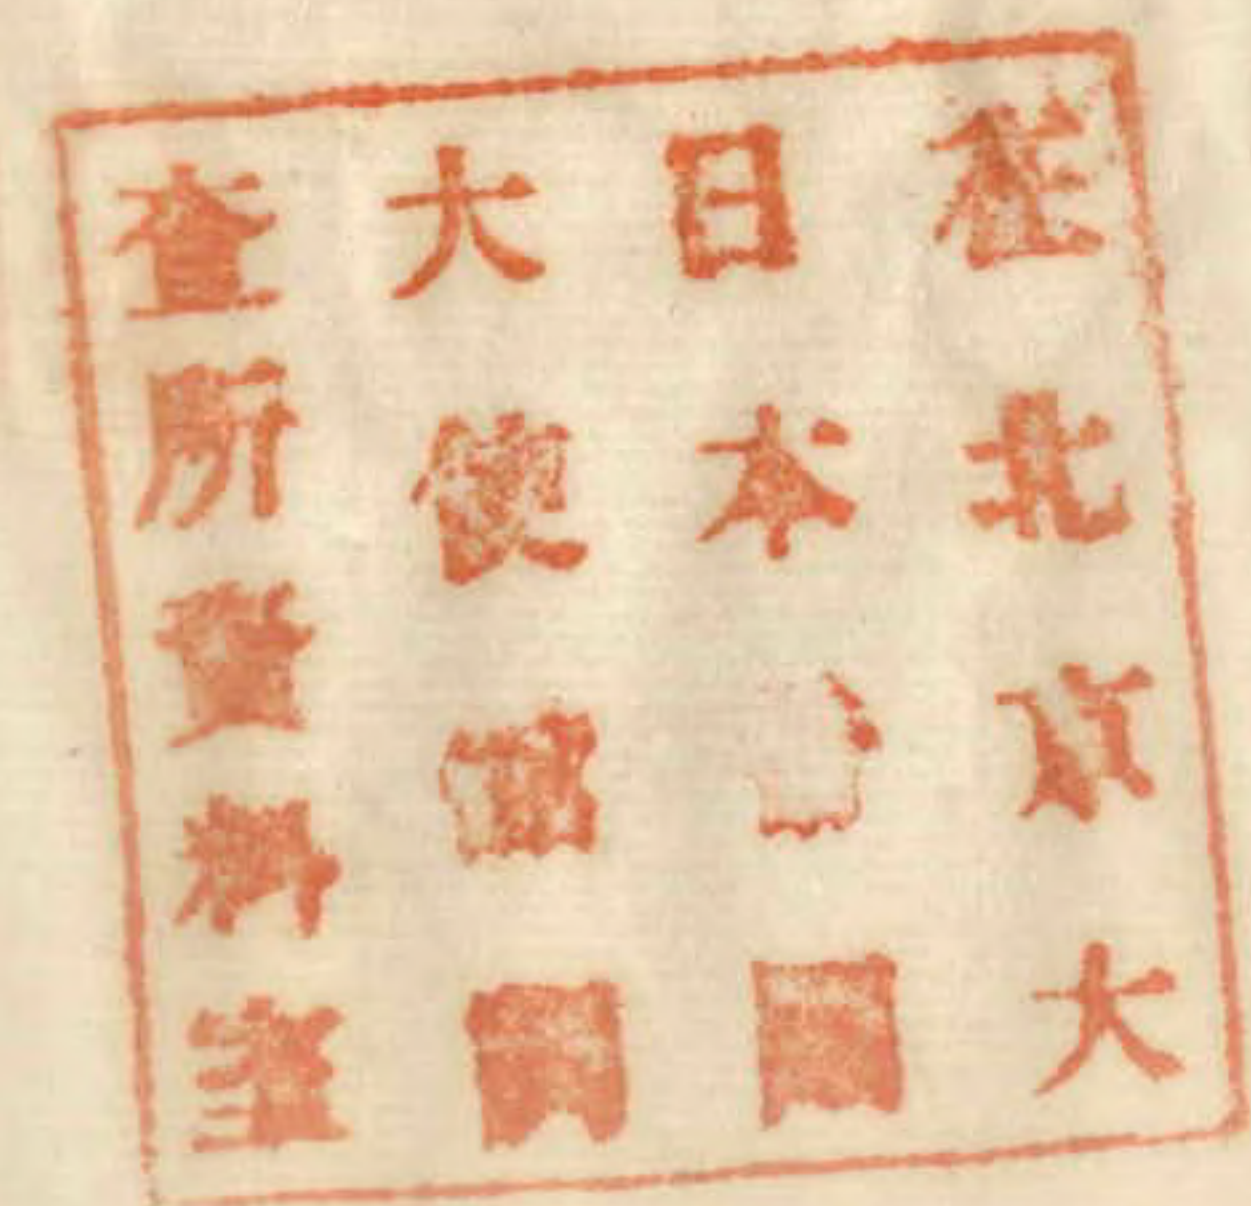 在北京大
日本帝國
大使館調
查所資料室